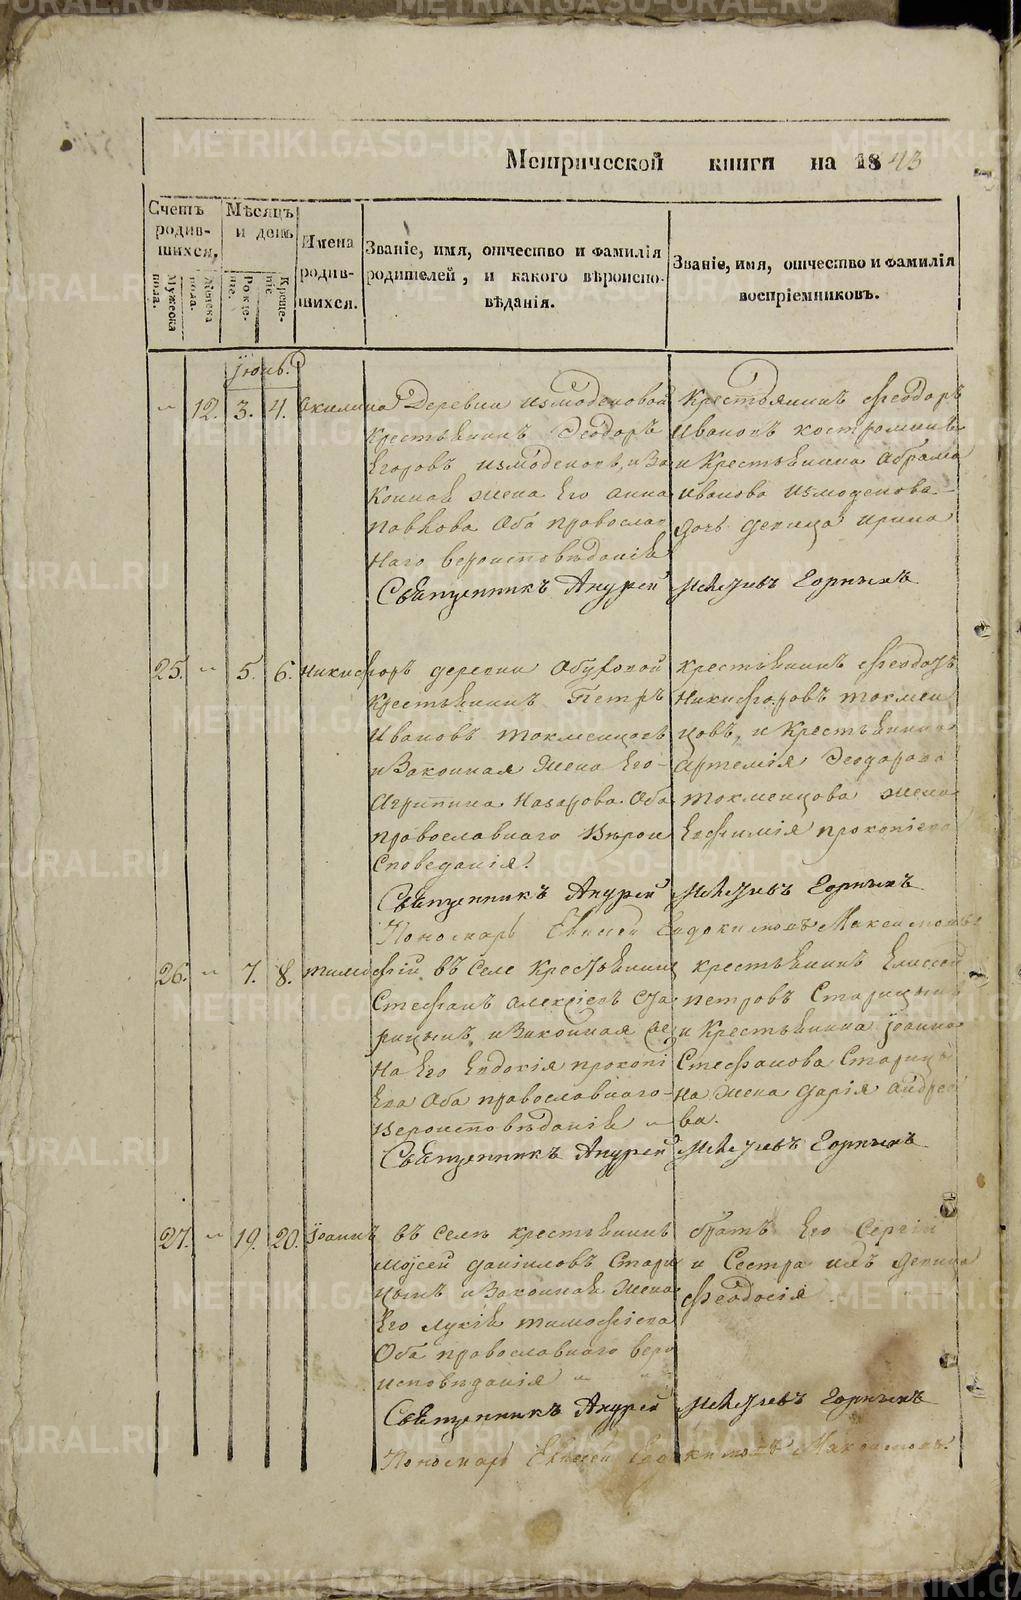 METRIKI.GASO-URAL.RU
Метрической книги на 1843
Счетъ родив-шихся,
Мужеска пола.
Женска пола.
Мѣсяцъ и день
Рожде-ніе.
Креще-ніе
Имена родив-шихся.
Званіе, имя, отчество и фамилія
родителей, и какого вѣроиспо-
вѣданія.
Званіе, имя, отчество и фамилія
воспріемниковъ.
Іюнь.
" 12. 3. 4. Акилина
Деревни Измоденовой
Крестьянинъ Ѳеодоръ
Егоровъ Измоденовъ, и За
конная жена Его Анна
Павлова Оба православ
наго вероисповѣданія
Крестьянинъ Ѳеодоръ
Ивановъ Костроминъ
и Крестьянина Абрама
Иванова Измоденова
дочь девица Ирина
Священникъ Андрей Горныхъ
25. " 5. 6. Никифоръ
деревни Обуховой
Крестьянинъ Петръ
Ивановъ Токменцовъ
и Законная Жена Его
Агрипина Назарова Оба
православнаго Вѣрои
споведанія.
крестьянинъ Ѳеодоръ
Никифоровъ Токмен
цовъ, и Крестьянина
Артемія Ѳеодорова
Токменцова жена
Евфимія Прокопіева
Священникъ Андрей Горныхъ
Пономарь Евдокимовъ Максимовъ
26. " 7. 8. Тимофій
въ Селе Крестьянинъ
Стефанъ Алексіевъ Ста
рицынъ, и Законная Же
на Его Евдокія Прокопі
ева Оба православнаго
Вероисповѣданія "
крестьянинъ Елисей
Петровъ Старицынъ
и Крестьянина Іоанна
Стефанова Стариц
на Жена Дарія Андрее
ва.
Священникъ Андрей Горныхъ
27. " 19. 20. Іоаннъ
въ Селѣ крестьянинъ
Мойсей Даніиловъ Стари
цынъ и Законная Жена
Его Лукія Тимофіева
Оба православнаго веро
исповѣданія "
братъ Его Сергій
и Сестра ихъ девица
Ѳеодосія
Священникъ Андрей Горныхъ
Пономарь Евдокимовъ Максимовъ.